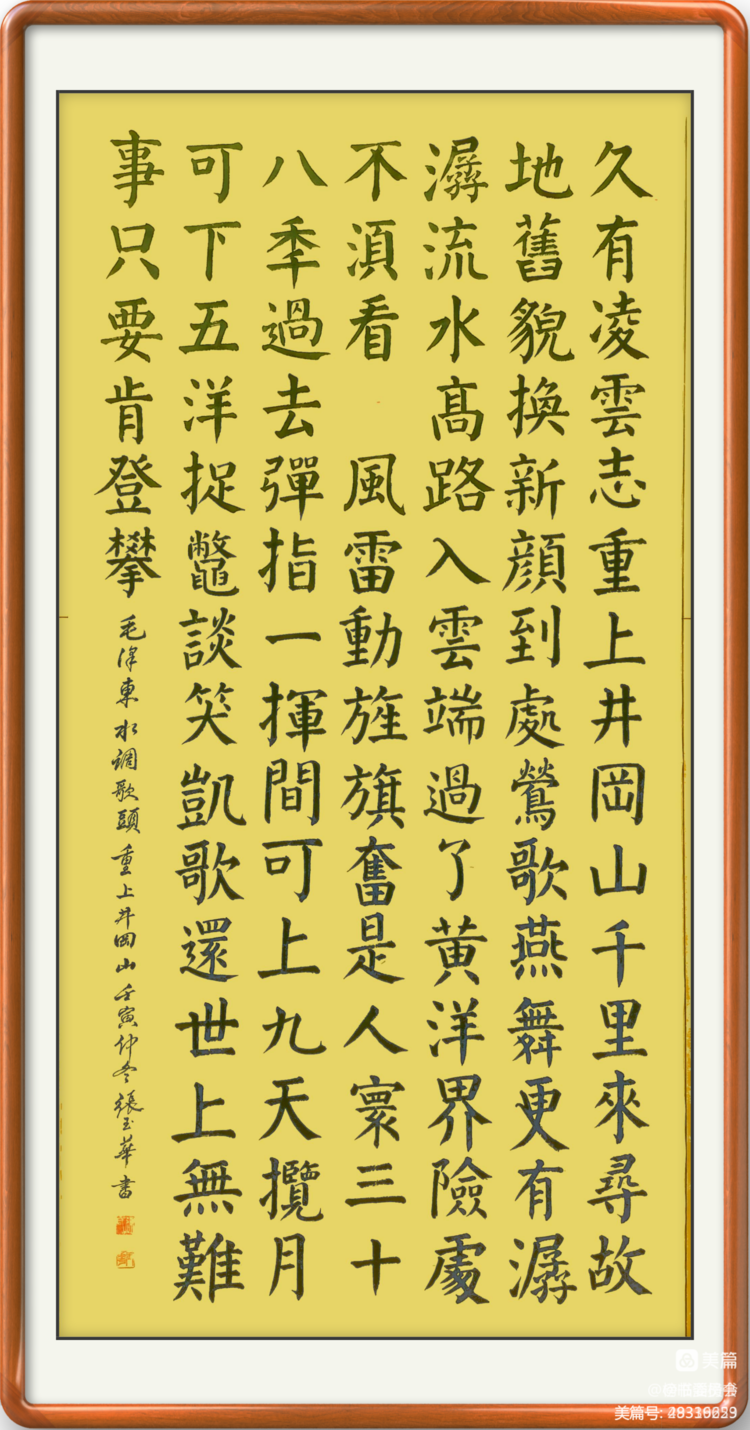 久有凌雲志重上井岡山千里來尋故
地舊貌換新顔到處鶯歌燕舞更有潺
潺流水髙路入雲端過了黄洋界險處
不湏看 風雷動旌旗奮是人寰三十
八秊過去彈指一揮間可上九天攬月
可下五洋捉鼈談笑凱歌還世上無難
事只要肯登攀
毛澤東 水調歌頭 重上井岡山 壬寅仲冬 張玉華書
美篇
美篇号: